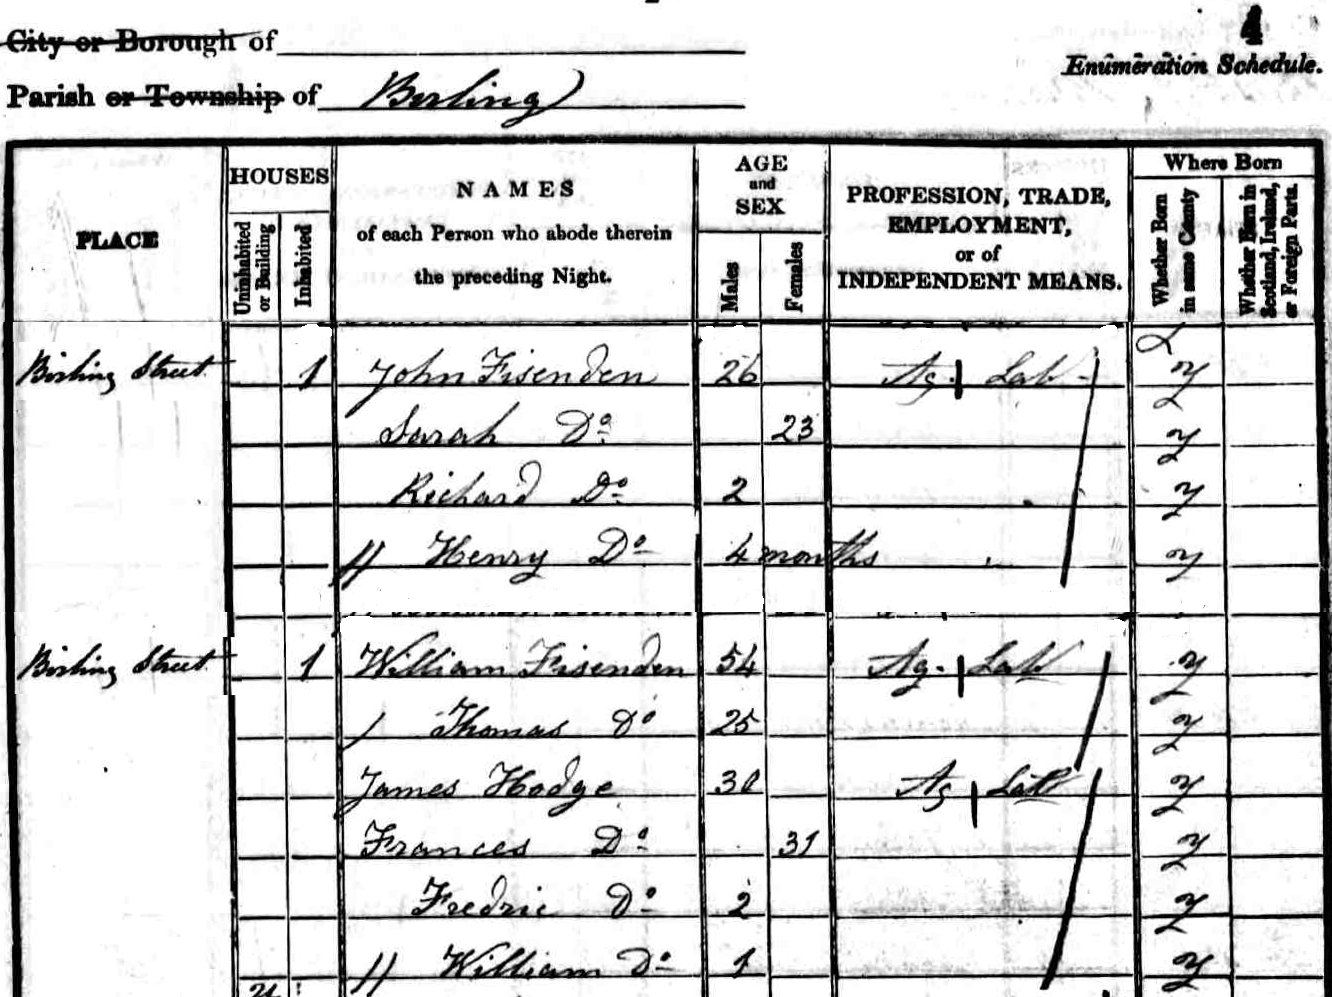 City or Borough of
Parish or Township of Birling
Enumeration Schedule.
PLACE
HOUSES
Uninhabited or Building
Inhabited
NAMES
of each Person who abode therein
the preceding Night.
AGE
and
SEX
Males
Females
PROFESSION, TRADE,
EMPLOYMENT,
or of
INDEPENDENT MEANS.
Where Born
Whether Born in same County
Whether Born in Scotland, Ireland, or Foreign Parts.
Birling Street 1 John Fisenden 26 Ag. Lab y
Sarah Do 23 y
Richard Do 2 y
Henry Do 4 months y
Birling Street 1 William Fisenden 54 Ag. Lab y
Thomas Do 25 y
James Hodge 30 Ag Lab y
Frances Do 31 y
Fredric Do 2 y
William Do 1 y